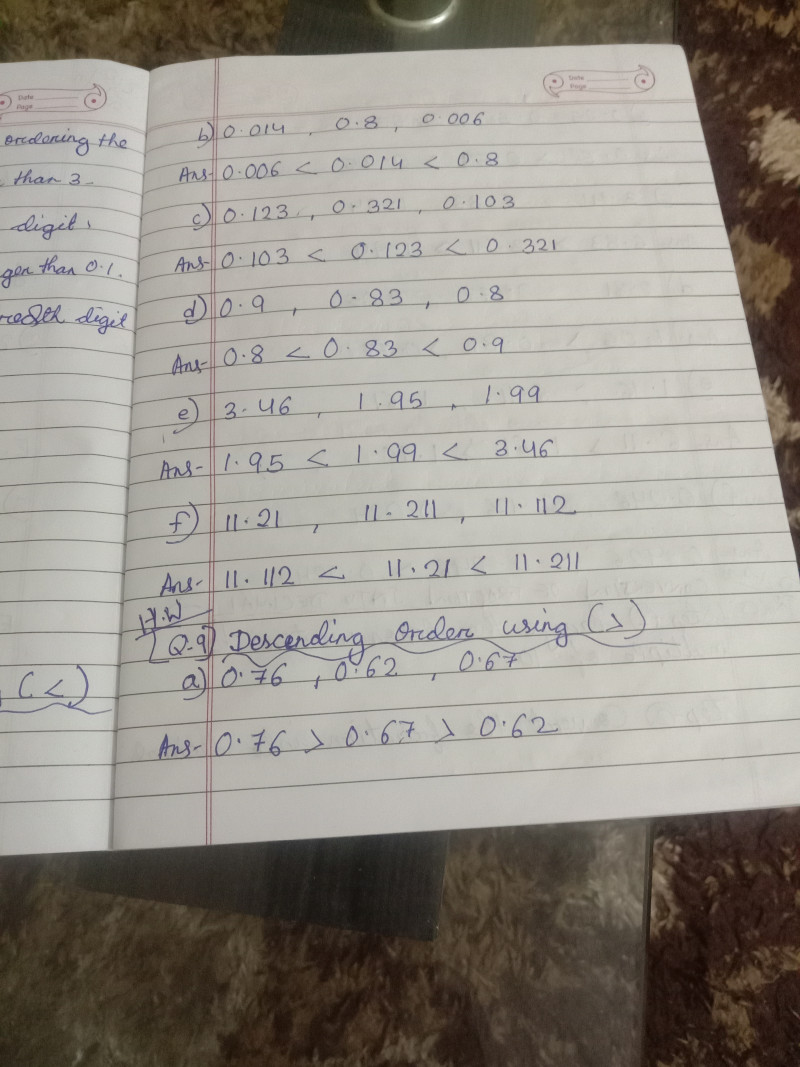 Date
Page
ordering the
than 3-
digit.
ger than 0.1.
digit
(<)
Date
Page
b) 0.014 , 0.8 , 0.006
Ans- 0.006 < 0.014 < 0.8
c) 0.123 , 0.321 , 0.103
Ans- 0.103 < 0.123 < 0.321
d) 0.9 , 0.83 , 0.8
Ans- 0.8 < 0.83 < 0.9
e) 3.46 , 1.95 , 1.99
Ans- 1.95 < 1.99 < 3.46
f) 11.21 , 11.211 , 11.112
Ans- 11.112 < 11.21 < 11.211
H.W
Q.9) Descending Order using (>)
a) 0.76 , 0.62 , 0.67
Ans- 0.76 > 0.67 > 0.62